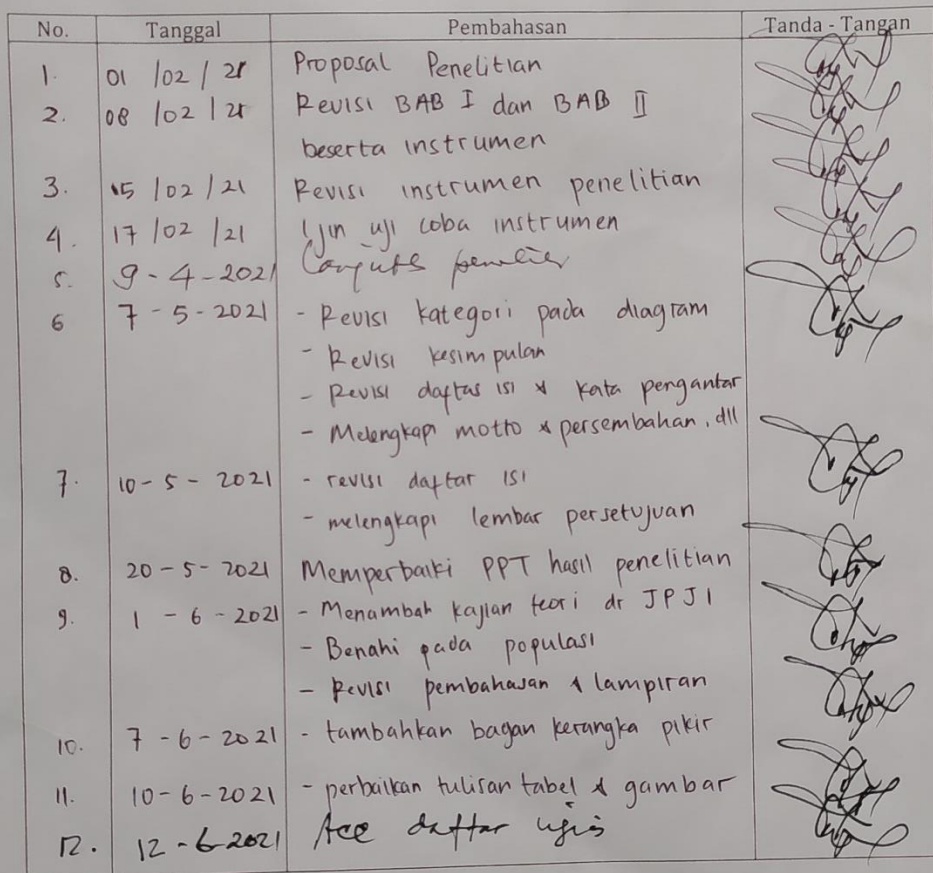 No. Tanggal Pembahasan Tanda - Tangan
1. 01 /02 / 21 Proposal Penelitian
2. 08 /02 / 21 Revisi BAB I dan BAB II
beserta instrumen
3. 15 /02 / 21 Revisi instrumen penelitian
4. 17 /02 /21 Ijin uji coba instrumen
5. 9 - 4 - 2021
6 7 - 5 - 2021 - Revisi kategori pada diagram
- Revisi kesimpulan
- Revisi daftas isi & kata pengantar
- Melengkapi motto & persembahan, dll
7. 10 - 5 - 2021 - revisi daftar isi
- melengkapi lembar persetujuan
8. 20 - 5 - 2021 Memperbaiki PPT hasil penelitian
9. 1 - 6 - 2021 - Menambah kajian teori dr JPJI
- Benahi pada populasi
- Revisi pembahasan & lampiran
10. 7 - 6 - 2021 - tambahkan bagan kerangka pikir
11. 10 - 6 - 2021 - perbaikan tulisan tabel & gambar
12. 12 - 6 - 2021 Acc daftar ujis